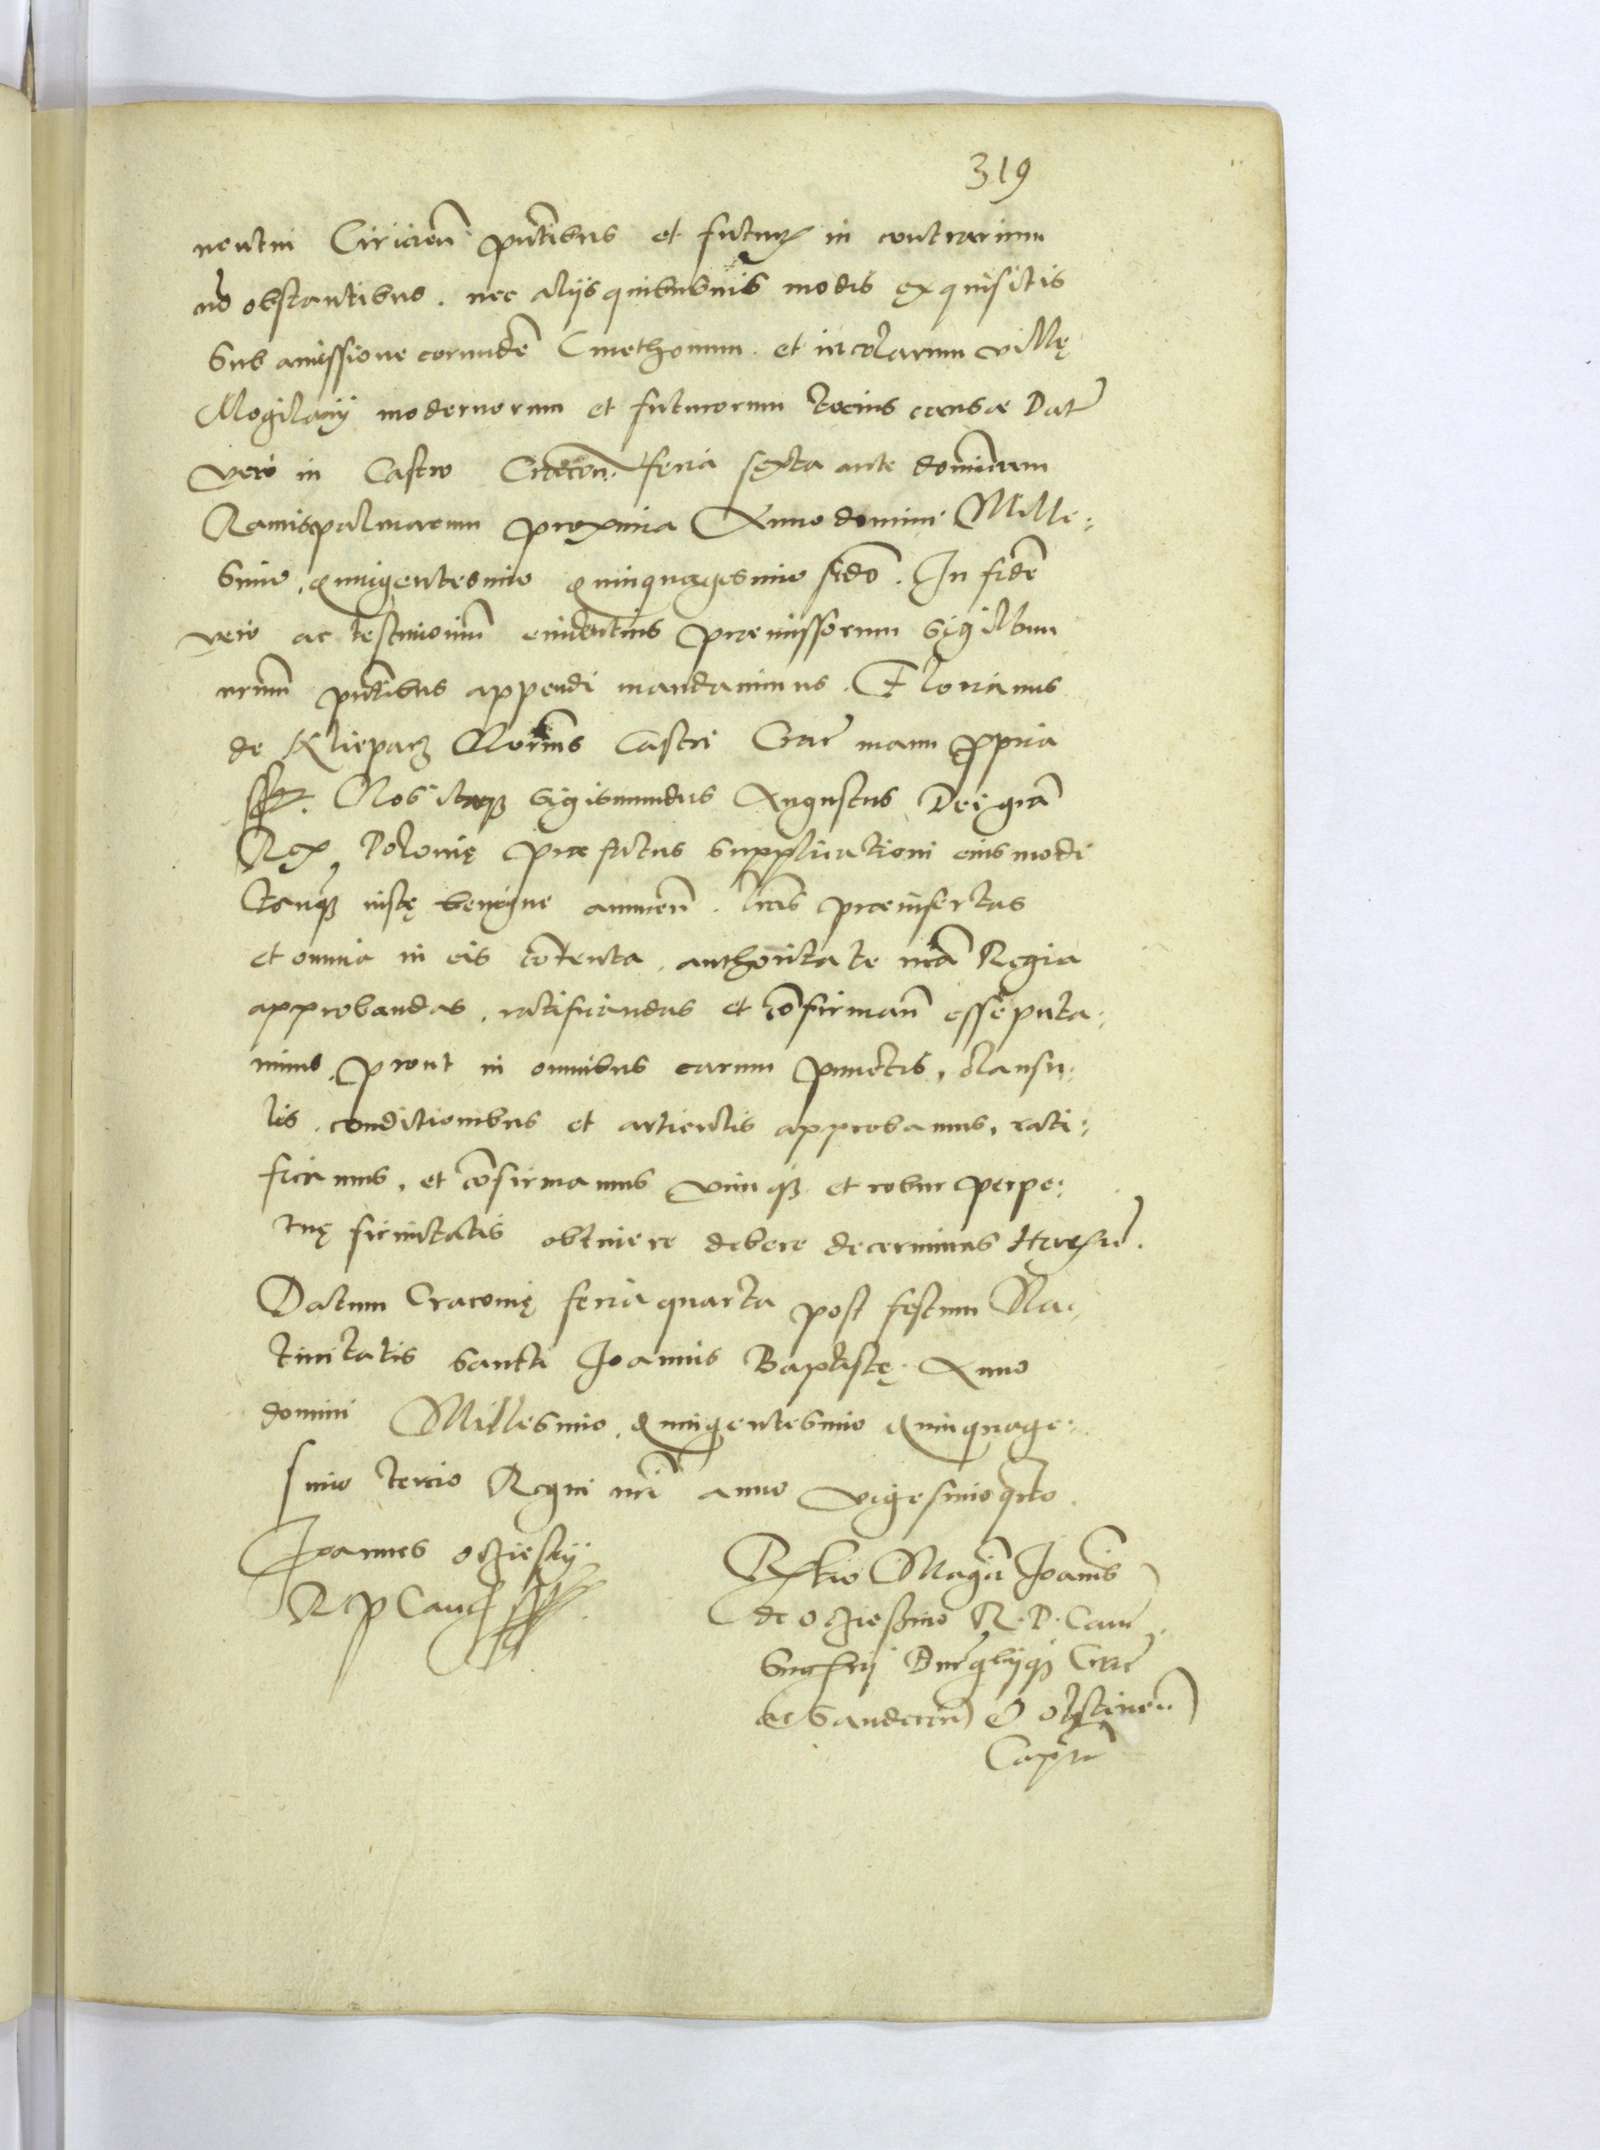 319
ventui Ciricien̄ pn̄tibus et futur̄ in contrarium
nō obstantibus. nec alijs quibusuis modis exquisitis
sub amissione eorundē Cmethonum et incolarum villę
Mogilany modernorum et futurorum tocius causae Dat̄
vero in Castro Cracou̅. feria sexta ante dominicam
Ramispalmarum proxima Anno domini Mille:
simo, quingentesimo quinquagesimo scdō. In fidē
vero ac testimoniū euidentius praemissorum sigillum
nrum̄ pn̄tibus appendi mandauimus. Florianus
de Klieparz Notarius Castri Crac̄ manu ppria
sst. Nos itaqʒ Sigismundus Augustus Dei gra͞
Rex Polonię praefatus supplicationi eiusmodi
tanqʒ iustę benigne annuen̄. lr̄as praeinsertas
et omnia in eis cōtenta, authoritate nr̄a Regia
approbandas, ratificandas et cōfirman̄ esse puta:
uimus, prout in omnibus earum punctis, clausu:
lis, conditionibus et articulis approbamus, rati:
ficamus, et cōfirmamus vimqʒ et robur perpe:
tuę firmitatis obtinere debere decernimus
Datum Cracouię feria quarta post festum Na:
tiuitatis Sancti Joannis Baptistę. Anno
domini Millesimo, quingentesimo quinquage:
simo tercio Regni nr̄i anno vigesimoqrto.
Joannes oczieskij
R P Canc̄
Rłtio Magci Joanis
de oczieschino R. P. Canc̄
Burgłijqʒ Crac̄
ac Sandecen̄ & olstinen̄
Capnei